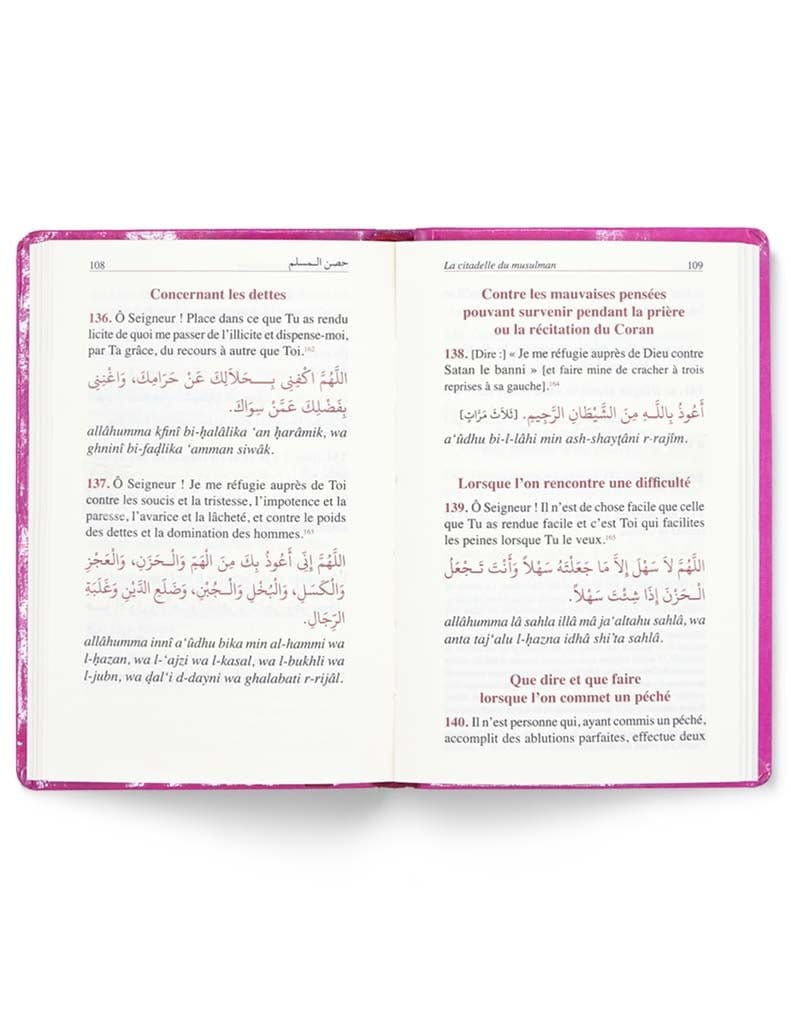 108
حصن المسلم
Concernant les dettes
136. Ô Seigneur ! Place dans ce que Tu as rendu
licite de quoi me passer de l’illicite et dispense-moi,
par Ta grâce, du recours à autre que Toi.¹⁶²
اللَّهُمَّ اكْفِنِي بِحَلاَلِكَ عَنْ حَرَامِكَ، وَاغْنِنِي
بِفَضْلِكَ عَمَّنْ سِوَاكَ.
allâhumma kfinî bi-ḥalâlika ‘an ḥarâmik, wa
ghninî bi-faḍlika ‘amman siwâk.
137. Ô Seigneur ! Je me réfugie auprès de Toi
contre les soucis et la tristesse, l’impotence et la
paresse, l’avarice et la lâcheté, et contre le poids
des dettes et la domination des hommes.¹⁶³
اللَّهُمَّ إِنِّي أَعُوذُ بِكَ مِنَ الْهَمِّ وَالْحَزَنِ، وَالْعَجْزِ
وَالْكَسَلِ، وَالْبُخْلِ وَالْجُبْنِ، وَضَلَعِ الدَّيْنِ وَغَلَبَةِ
الرِّجَالِ.
allâhumma innî a‘ûdhu bika min al-hammi wa
l-ḥazan, wa l-‘ajzi wa l-kasal, wa l-bukhli wa
l-jubn, wa ḍal‘i d-dayni wa ghalabati r-rijâl.
La citadelle du musulman
109
Contre les mauvaises pensées
pouvant survenir pendant la prière
ou la récitation du Coran
138. [Dire :] « Je me réfugie auprès de Dieu contre
Satan le banni » [et faire mine de cracher à trois
reprises à sa gauche].¹⁶⁴
أَعُوذُ بِاللَّهِ مِنَ الشَّيْطَانِ الرَّجِيمِ. [ثَلاَثَ مَرَّاتٍ]
a‘ûdhu bi-l-lâhi min ash-shayṭâni r-rajîm.
Lorsque l’on rencontre une difficulté
139. Ô Seigneur ! Il n’est de chose facile que celle
que Tu as rendue facile et c’est Toi qui facilites
les peines lorsque Tu le veux.¹⁶⁵
اللَّهُمَّ لاَ سَهْلَ إِلاَّ مَا جَعَلْتَهُ سَهْلاً وَأَنْتَ تَجْعَلُ
الْحَزْنَ إِذَا شِئْتَ سَهْلاً.
allâhumma lâ sahla illâ mâ ja‘altahu sahlâ, wa
anta taj‘alu l-ḥazna idhâ shi’ta sahlâ.
Que dire et que faire
lorsque l’on commet un péché
140. Il n’est personne qui, ayant commis un péché,
accomplit des ablutions parfaites, effectue deux